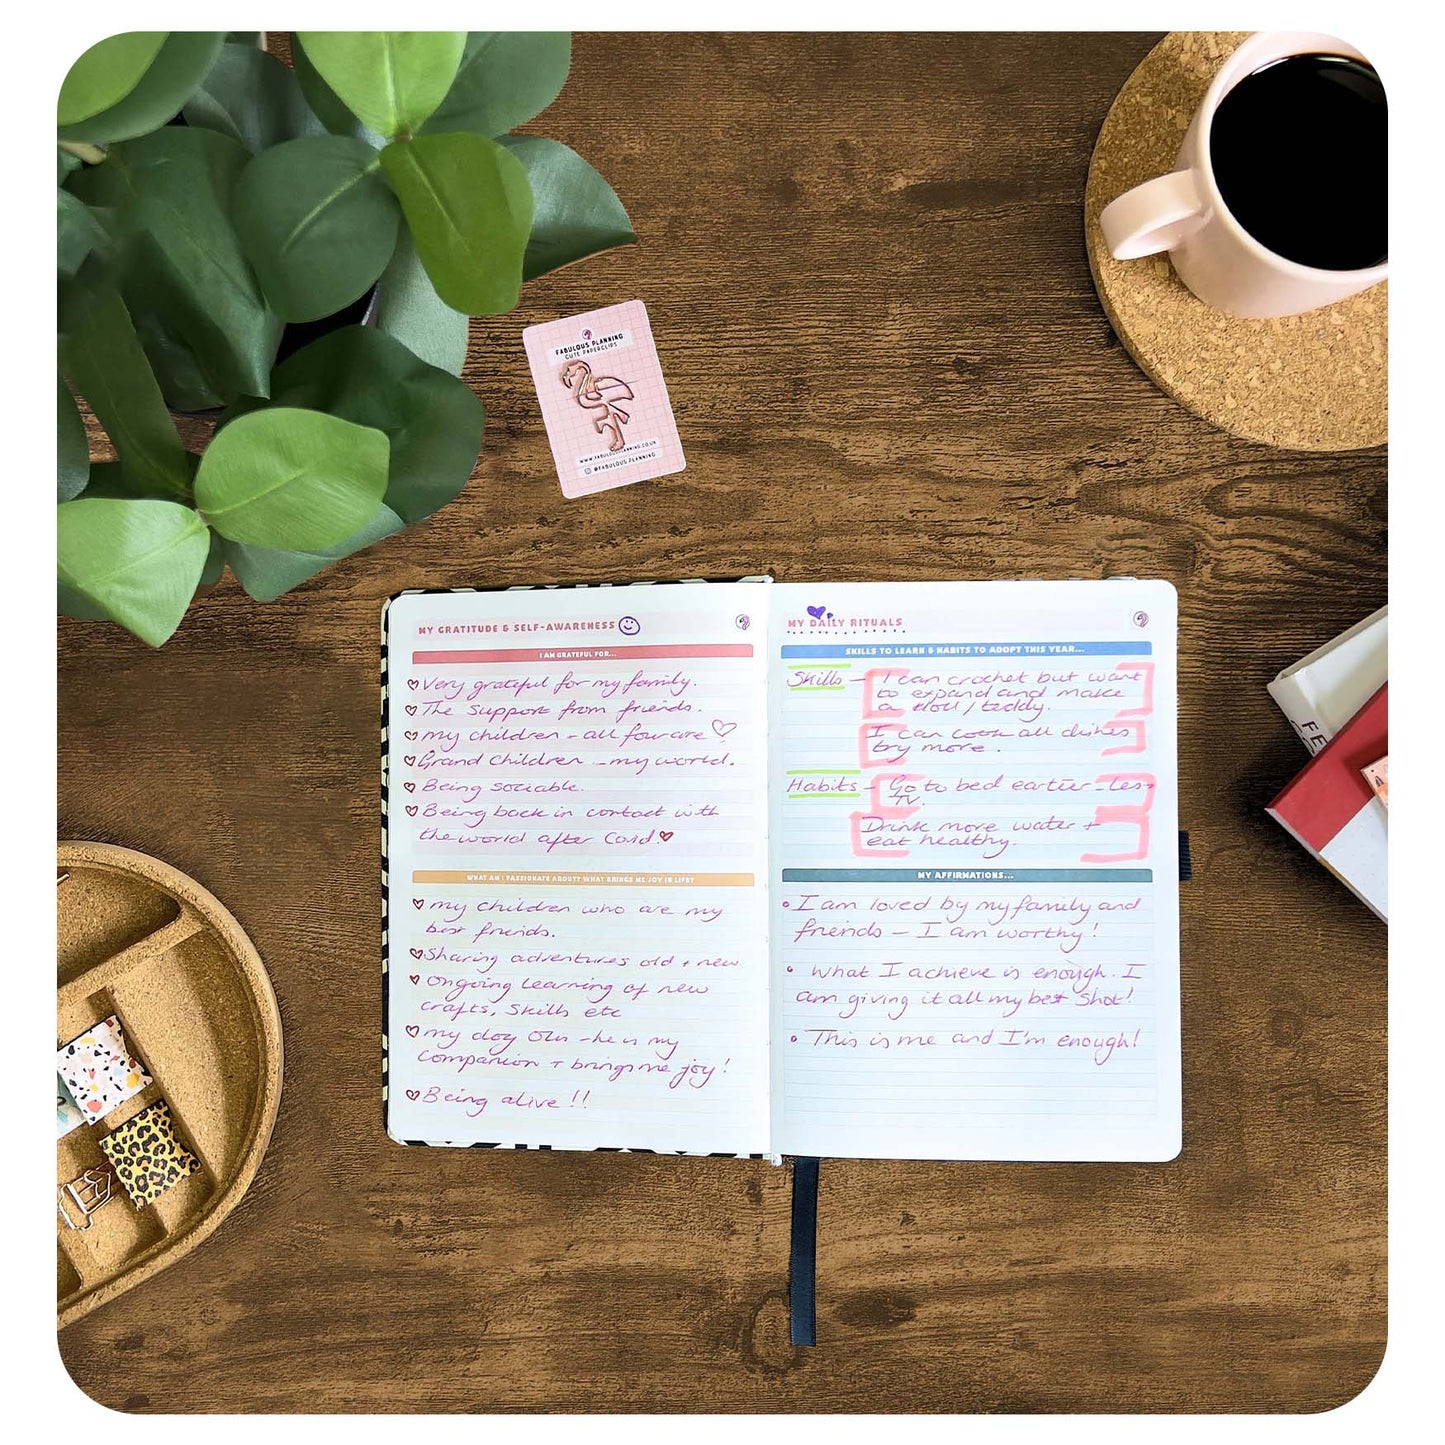 FABULOUS PLANNING
CUTE PAPERCLIPS
WWW.FABULOUSPLANNING.CO.UK
@FABULOUS.PLANNING
MY GRATITUDE & SELF-AWARENESS
I AM GRATEFUL FOR...
Very grateful for my family.
The support from friends.
my children - all four are
Grand children - my world.
Being sociable.
Being back in contact with
the world after Covid.
WHAT AM I PASSIONATE ABOUT? WHAT BRINGS ME JOY IN LIFE?
my children who are my
best friends.
Sharing adventures old + new
ongoing learning of new
crafts, skills etc
my dog - he is my
companion + brings me joy!
Being alive!!
MY DAILY RITUALS
SKILLS TO LEARN & HABITS TO ADOPT THIS YEAR...
Skills - I can crochet but want
to expand and make
a doll/teddy.
I can cook all dishes
try more.
Habits - Go to bed earlier - less
TV.
Drink more water +
eat healthy.
MY AFFIRMATIONS...
I am loved by my family and
friends - I am worthy!
What I achieve is enough. I
am giving it all my best shot!
This is me and I'm enough!
FE